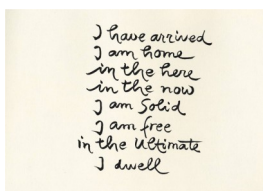 I have arrived
I am home
in the here
in the now
I am Solid
I am free
in the Ultimate
I dwell